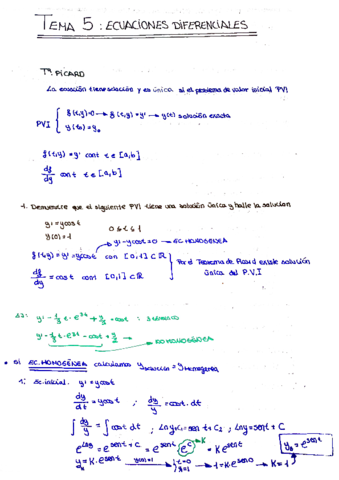 TEMA 5: ECUACIONES DIFERENCIALES
Tª. PICARD
La ecuación tiene solución y es única si el problema de valor inicial "PVI
PVI { f(t,y)=0 → f(t,y) = y' → y(t) solución exacta
y(t₀) = y₀
f(t,y) = y' cont t ∈ [a,b]
df/dy cont t ∈ [a,b]
1. Demuestre que el siguiente PVI tiene una solución única y halle la solución
y' = y cos t
y(0) = 1
0 ≤ t ≤ 1
→ y' - y cos t = 0 → EC HOMOGÉNEA
f(t,y) = y' = y cos t con [0,1] ⊂ ℝ
df/dy = cos t cont [0,1] ⊂ ℝ
Por el Teorema de Picard existe solución
única del P.V.I
y' - t · e^3t + y - cos t :
y' - t · e^3t - cos t + →
NO HOMOGÉNEA
• Si EC. HOMOGÉNEA calculamos y solución = y homogénea
1: Ec. inicial. y' = y cos t
dy/dt = y cos t ; dy/y = cos t · dt
∫ dy/y = ∫ cos t dt ; Ln y + C₁ = sen t + C₂ ; Ln y = sen t + C
e^Lny = e^sen t + C = e^sen t · e^C = K e^sen t
y = K · e^sen t → 1 = K · e^sen 0 → K = 1
y = e^sen t